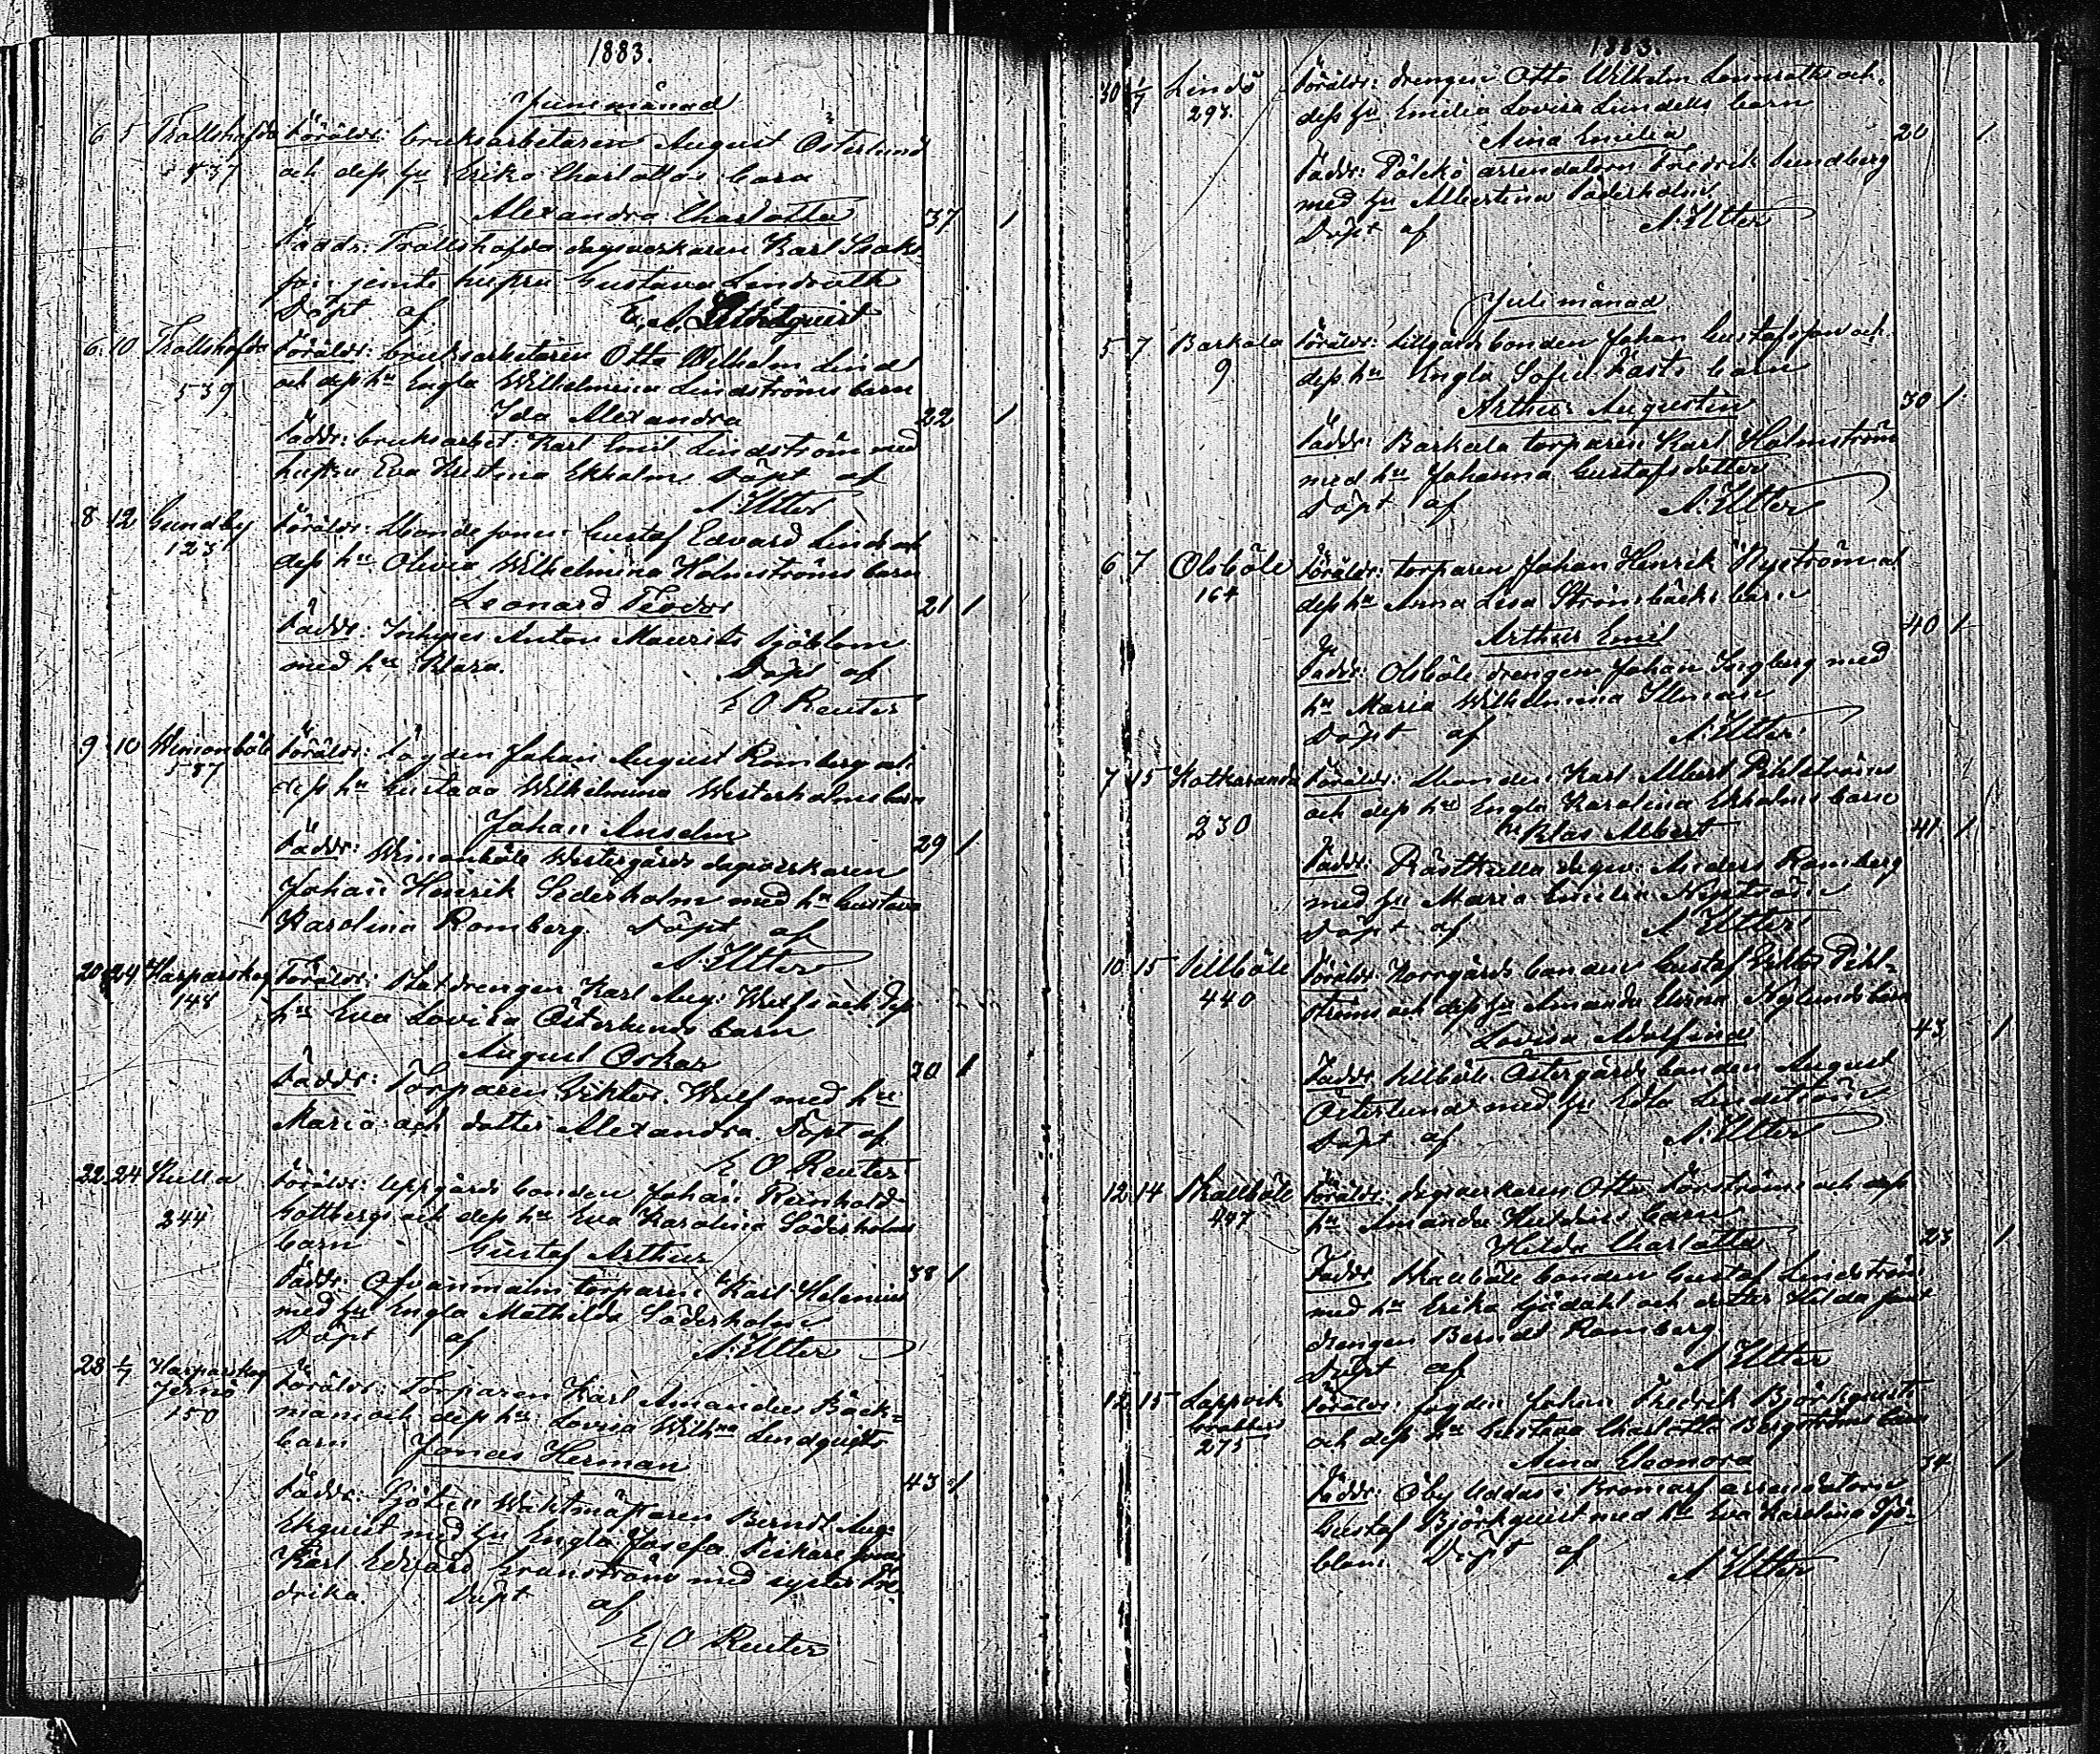 1883.
Juni månad
6 5 Trollshofda Föräldr: bruksarbetaren August Österlund
537 och dess hu Erika Charlottas barn
Alexandra Charlotta 37 1
Faddr: Trollshofda dagsverkaren Karl
jemte hustru Gustava Lindroth
Döpt af
6 10 Trollshofda Föräldr: bruksarbetaren Otto Wilhelm Lind
539 och dess hu Engla Wilhelmina Lindströms barn
Ida Alexandra 22 1
Faddr: bruksarbet: Karl Emil Lindström med
hustru Eva Kristina Ekholm Döpt af
A. Utter
8 12 Gundby Föräldr: Bondesonen Gustaf Edvard Lind och
123 dess hu Olivia Wilhelmina Holmströms barn
Leonard Teodor 21 1
Faddr: Inhyses Anton Maurits Sjöblom
med hu Klara. Döpt af
E O Reuter
9 10 Wimonböle Föräldr: Fogden Johan August Romberg och
587 dess hu Gustava Wilhelmina Westerholms barn
Johan Anselm 29 1
Faddr: Wimonböle Westergårds dagsverkaren
Johan Henrik Sederholm med hu Gustava
Karolina Romberg. Döpt af
A. Utter
20 24 Harparskog Föräldr: Statdrengen Karl Aug: Wulf och dess
148 hu Eva Lovisa Österlunds barn
August Oskar 20 1
Faddr: Torparen Viktor Wulf med hu
Maria och dotter Alexandra. Döpt af
E O Reuter
22 24 Kulla Föräldr: Uppgårds bonden Johan Reinhold
244 Gottbergs och dess hu Eva Karolina Söderholms
barn Gustaf Arthur 38 1
Faddr: Ofvanmalm torparen Karl Helenius
med hu Engla Mathilda Söderholm
Döpt af A. Utter
28 1/7 Harparskog Föräldr: Torparen Karl Amandus Bäck=
Jernö mans och dess hu Lovisa Wilhna Lindqvists
150 barn Jonas Herman 43 1
Faddr: Sjötull Waktmästaren Berndt Aug:
Ekquist med hu Engla Josefa Fiskare sonen
Karl Edvard Granström med syster Fre-
drika. Döpt af
E O Reuter
1883.
30 1/7 Lindö Föräldr: drengen Otto Wilhelm Lennroths och
293. dess hu Emilia Lovisa Lundells barn
Aina Emilia 20 1
Faddr: Pölckö arrendatorn Fredrik Sundberg
med hu Albertina Söderholm
Döpt af A. Utter
Juli månad
5 7 Baskala Föräldr: Lillgårds bonden Johan Gustafsson och
9 dess hu Engla Sofia Fasts barn
Arthur Augustin 30 1
Faddr: Barkala torparen Karl Holmström
med hu Johanna Gustafsdotter
Döpt af A. Utter
6 7 Olsböle Föräldr: torparen Johan Henrik Nyström och
164 dess hu Anna Lisa Strömsbäcks barn
Arthur Emil 40 1
Faddr: Olsböle drengen Johan Ingberg med
hu Maria Wilhelmina Illman
Döpt af A. Utter
7 15 Kotkaranda Föräldr: Bonden Karl Albert Pihlströms
230 och dess hu Engla Karolina Ekholms barn
Klas Albert 41 1
Faddr: Råstkulla dagsv: Anders Romberg
med hu Maria Emilia Nyström
Döpt af A Utter
10 15 Sillböle Föräldr: Norrgårds bonden Gustaf Viktor Pihl=
440 ströms och dess hu Amanda Nylunds barn
Lovisa Adolfina 43 1
Faddr: Sillböle Östergårds bonden August
Österlund med hu Edla Lindström
Döpt af A. Utter
12 14 Skallböle Föräldr: dagsverkaren Otto Forströms och dess
447 hu Amanda barn
Hilda Charlotta 23 1
Faddr: Skallböle bonden Gustaf Lindström
med hu Erika Sjödahl och dotter Hilda samt
drengen Berndt Romberg
Döpt af A Utter
12 15 Lappvik Föräldr: fogden Johan Fredrik Björkquists
275 och dess hu Gustava Charlotta Bergströms barn
Aina Eleonora 34 1
Faddr: Öby Uddas i Bromarf arrendatorn
Gustaf Björkquist med hu Eva Karolina Sjö-
blom. Döpt af A Utter